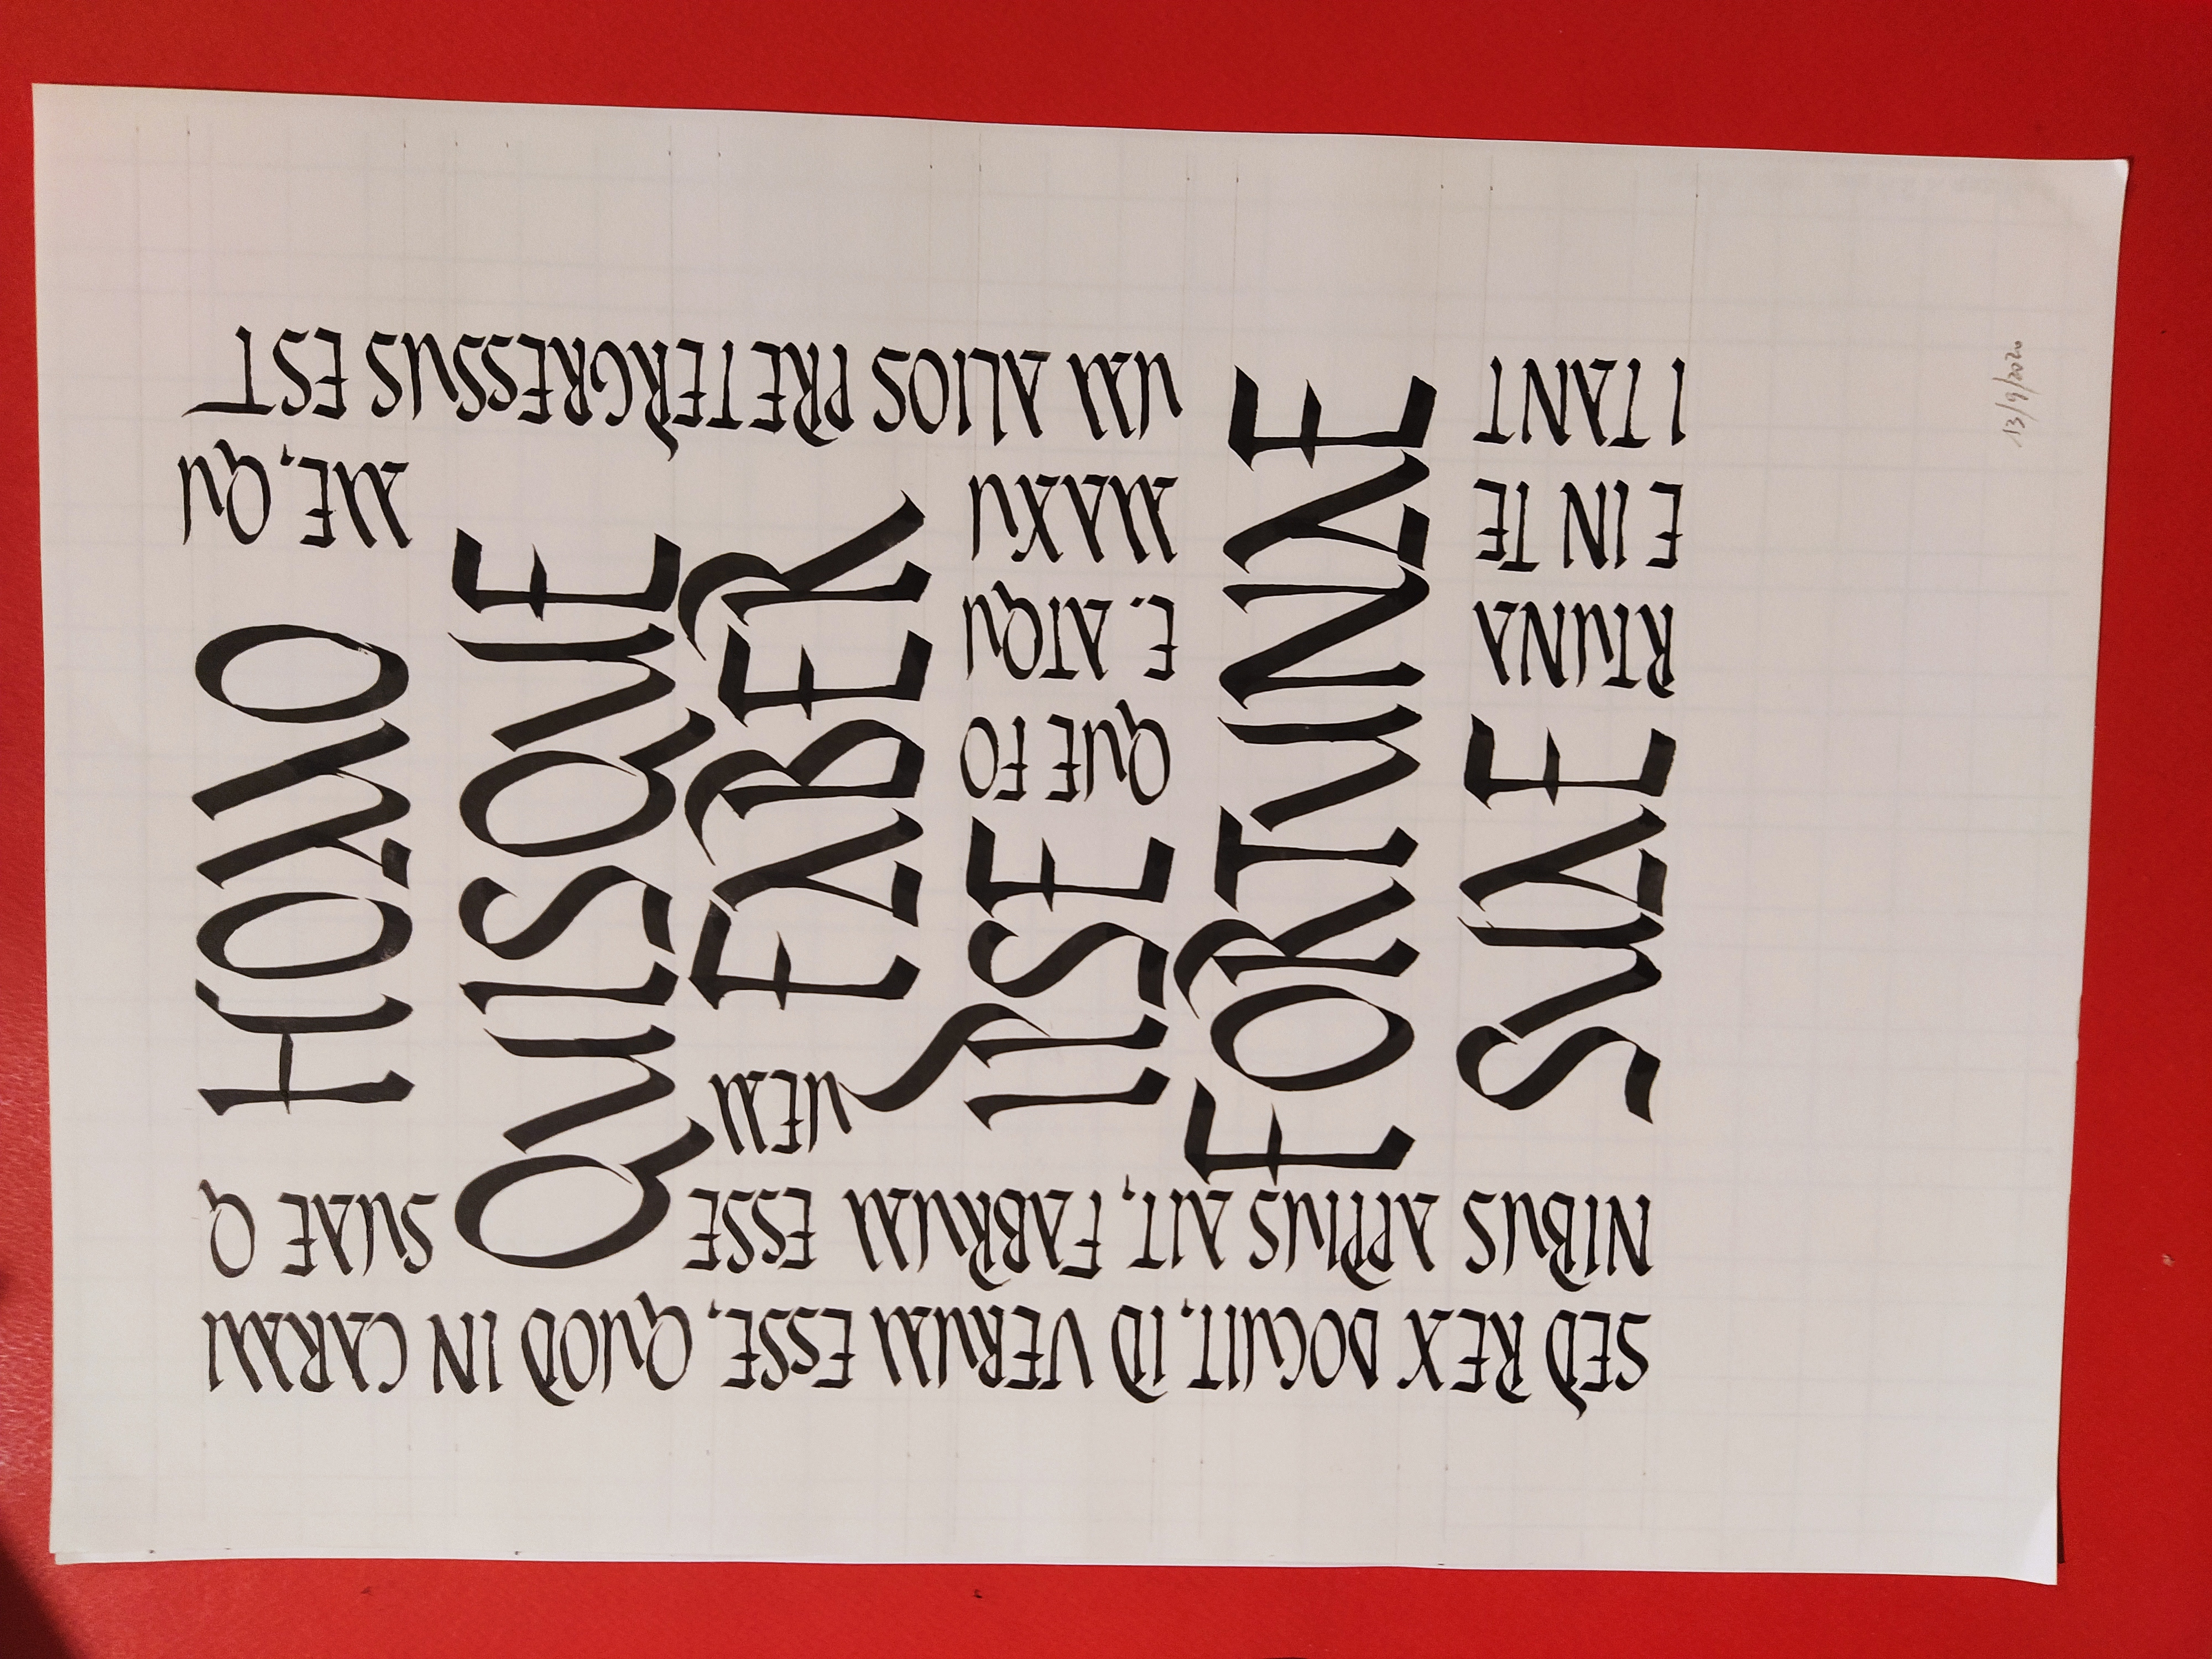 HOMO
QUISQUE
FABER
IPSE
FORTUNAE
SUAE
SED REX DOCUIT, ID VERUM ESSE, QUOD IN CARMI
NIBUS APPIUS AIT, FABRUM ESSE SUAE Q
UEM
QUE FO
RTUNA E. ATQU
E IN TE MAXU ME, QU
I TANT UM ALIOS PRETERGRESSUS EST
13/9/2020